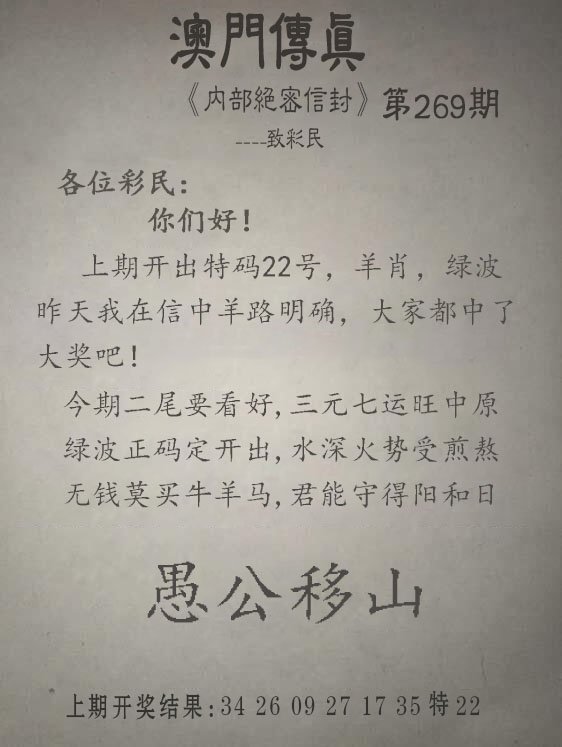 澳門傳真
《内部絕密信封》第269期
----致彩民
各位彩民：
你们好！
上期开出特码22号，羊肖，绿波
昨天我在信中羊路明确，大家都中了
大奖吧！
今期二尾要看好,三元七运旺中原
绿波正码定开出,水深火势受煎熬
无钱莫买牛羊马,君能守得阳和日
愚公移山
上期开奖结果:34 26 09 27 17 35 特 22